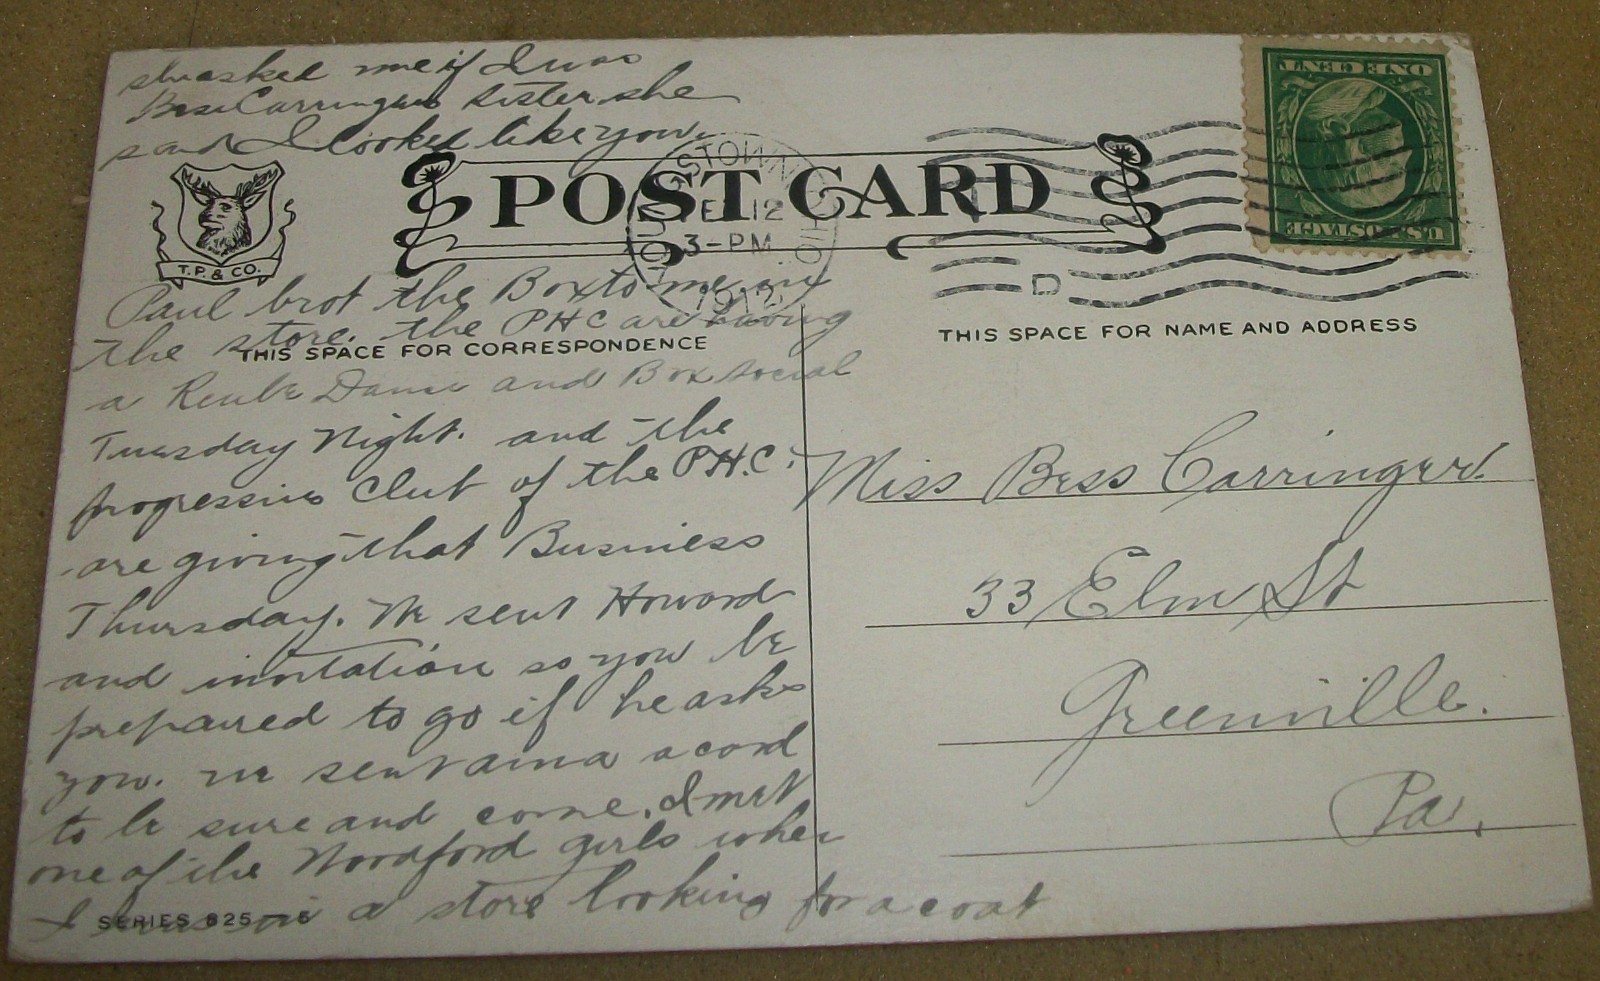 she asked me if I was
Bess Carringers sister she
said I looked like you
POST CARD
YOUNGSTOWN OHIO
12
3-PM
1912
D
U.S. POSTAGE
ONE CENT
T.P. & CO.
THIS SPACE FOR CORRESPONDENCE
Paul brot the Box to me in
the store. the PHC are having
a Reube Dance and Box social
Tuesday Night. and the
progressive Club of the P.H.C.
are giving that Business
Thursday. We sent Howard
and invitation so you be
prepaired to go if he asks
you. we sent a card
to be sure and come. I met
one of the Woodford girls when
I was in a store looking for a coat
SERIES 825
THIS SPACE FOR NAME AND ADDRESS
Miss Bess Carringer.
33 Elm St
Greenville.
Pa.